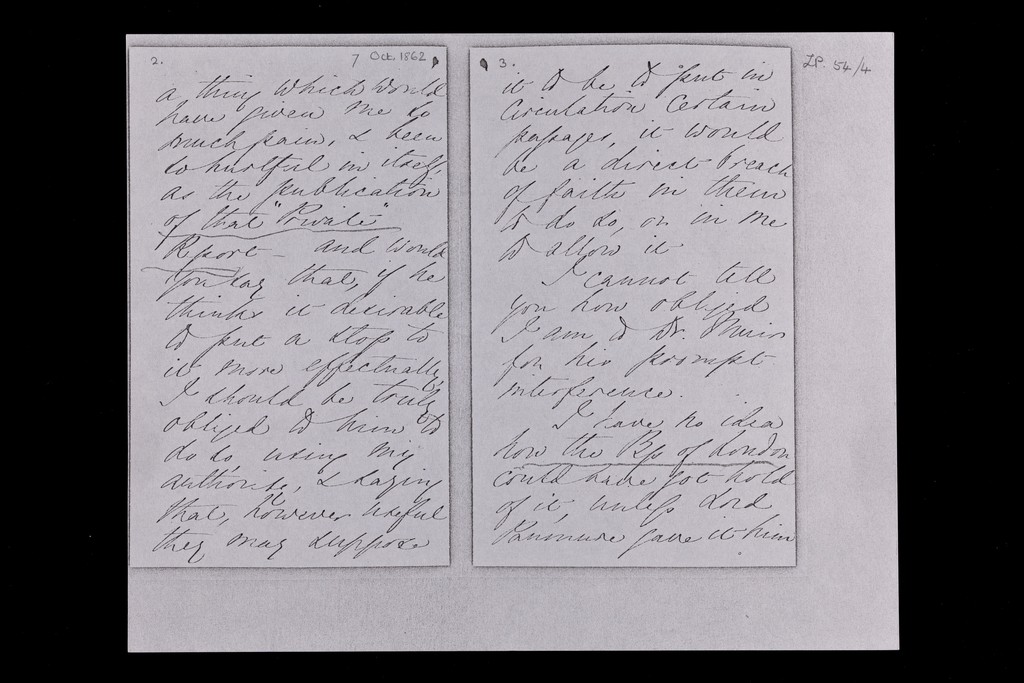 2.
7 Oct. 1862
a thing which would
have given me so
much pain, & been
so hurtful in itself,
as the publication
of that "Private"
Report - and would
you say that, if he
thinks it desirable
to put a stop to
it more effectually,
I should be truly
obliged to him to
do so using my
authority, & saying
that, however useful
they may suppose
3.
it to be to put in
circulation certain
passages, it would
be a direct breach
of faith in them
to do so, or in me
to allow it
I cannot tell
you how obliged
I am to Dr. Muir
for his prompt
interference.
I have no idea
how the Bp of London
could have got hold
of it, unless Lord
Panmure gave it him
LP. 54/4